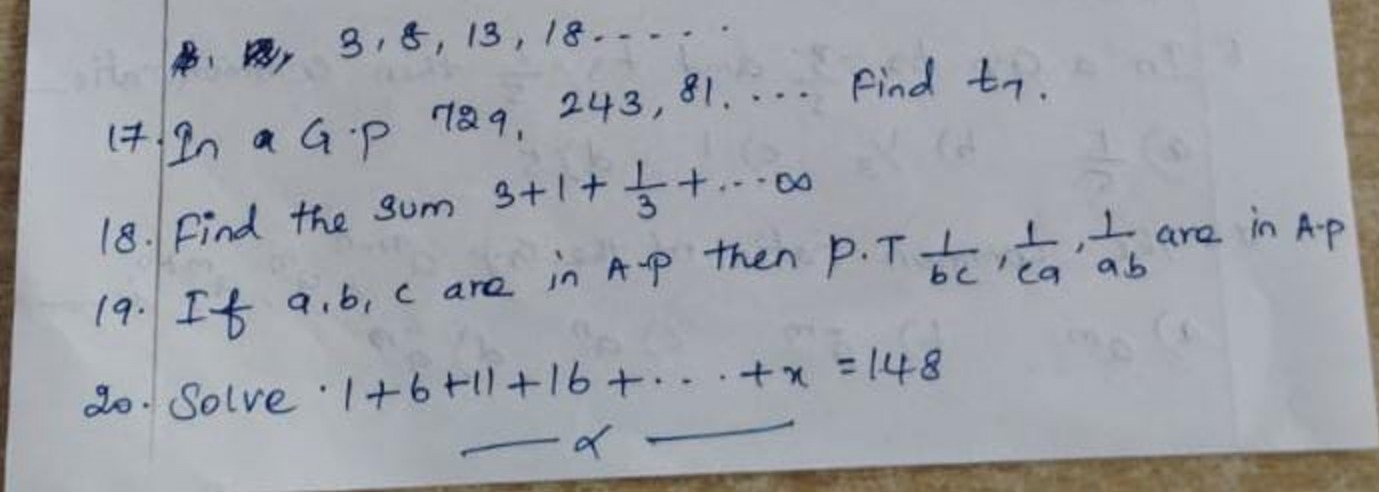 3, 8, 13, 18.....
17. In a G.P 729, 243, 81.... Find t7.
18. Find the sum 3+1+1/3+...∞
19. If a, b, c are in A.P then P.T 1/bc, 1/ca, 1/ab are in A.P
20. Solve 1+6+11+16+...+x =148